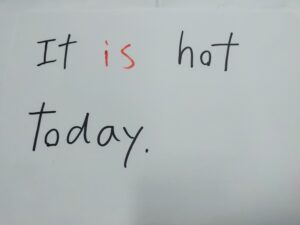 It is hot
today.